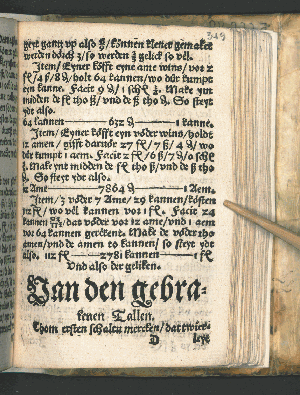 349
geyt gantz vp also ß/ können klener gemaket
werden dorch 3/ so werden ⅔ gelick so vel.
Item/ Eyner köfft eyne ame wins/ vor 2
fl/ 4 ß/ 8 ₰/ holt 64 kannen/ wo dür kumpt
ein kanne. Facit 9 ₰/ 1 schl. Make ynt
midden de fl tho ß/ vnd de ß tho ₰. So steyt
ydt also.
64 kannen 632 ₰ 1 kanne.
Item/ Eyner köfft eyn vöder wins/ holdt
12 amen/ gifft darvör 27 fl/ 7 ß/ 4 ₰/ wo
dür kumpt 1 aem. Facit 2 fl/ 6 ß/ 7 ₰/ 0 schl
. Make ynt midden de fl tho ß/ vnd de ß tho
₰. So steyt ydt also.
12 Ame 7864 ₰ 1 Aem.
Item/ 3 vöder 7 Ame/ 29 kannen/ kösten
112 fl/ wo vel kannen vor 1 fl. Facit 24
kannen / dat vöder vor 12 ame/ vnd 1 aem
vor 64 kannen gerekent. Make de vöder tho
amen/ vnd de amen to kannen/ so steyt ydt
also. 112 fl 2781 kannen 1 fl
Vnd also der geliken.
Van den gebra-
kenen Tallen.
Thom ersten schaltu mercken/ dat twier-
D leye